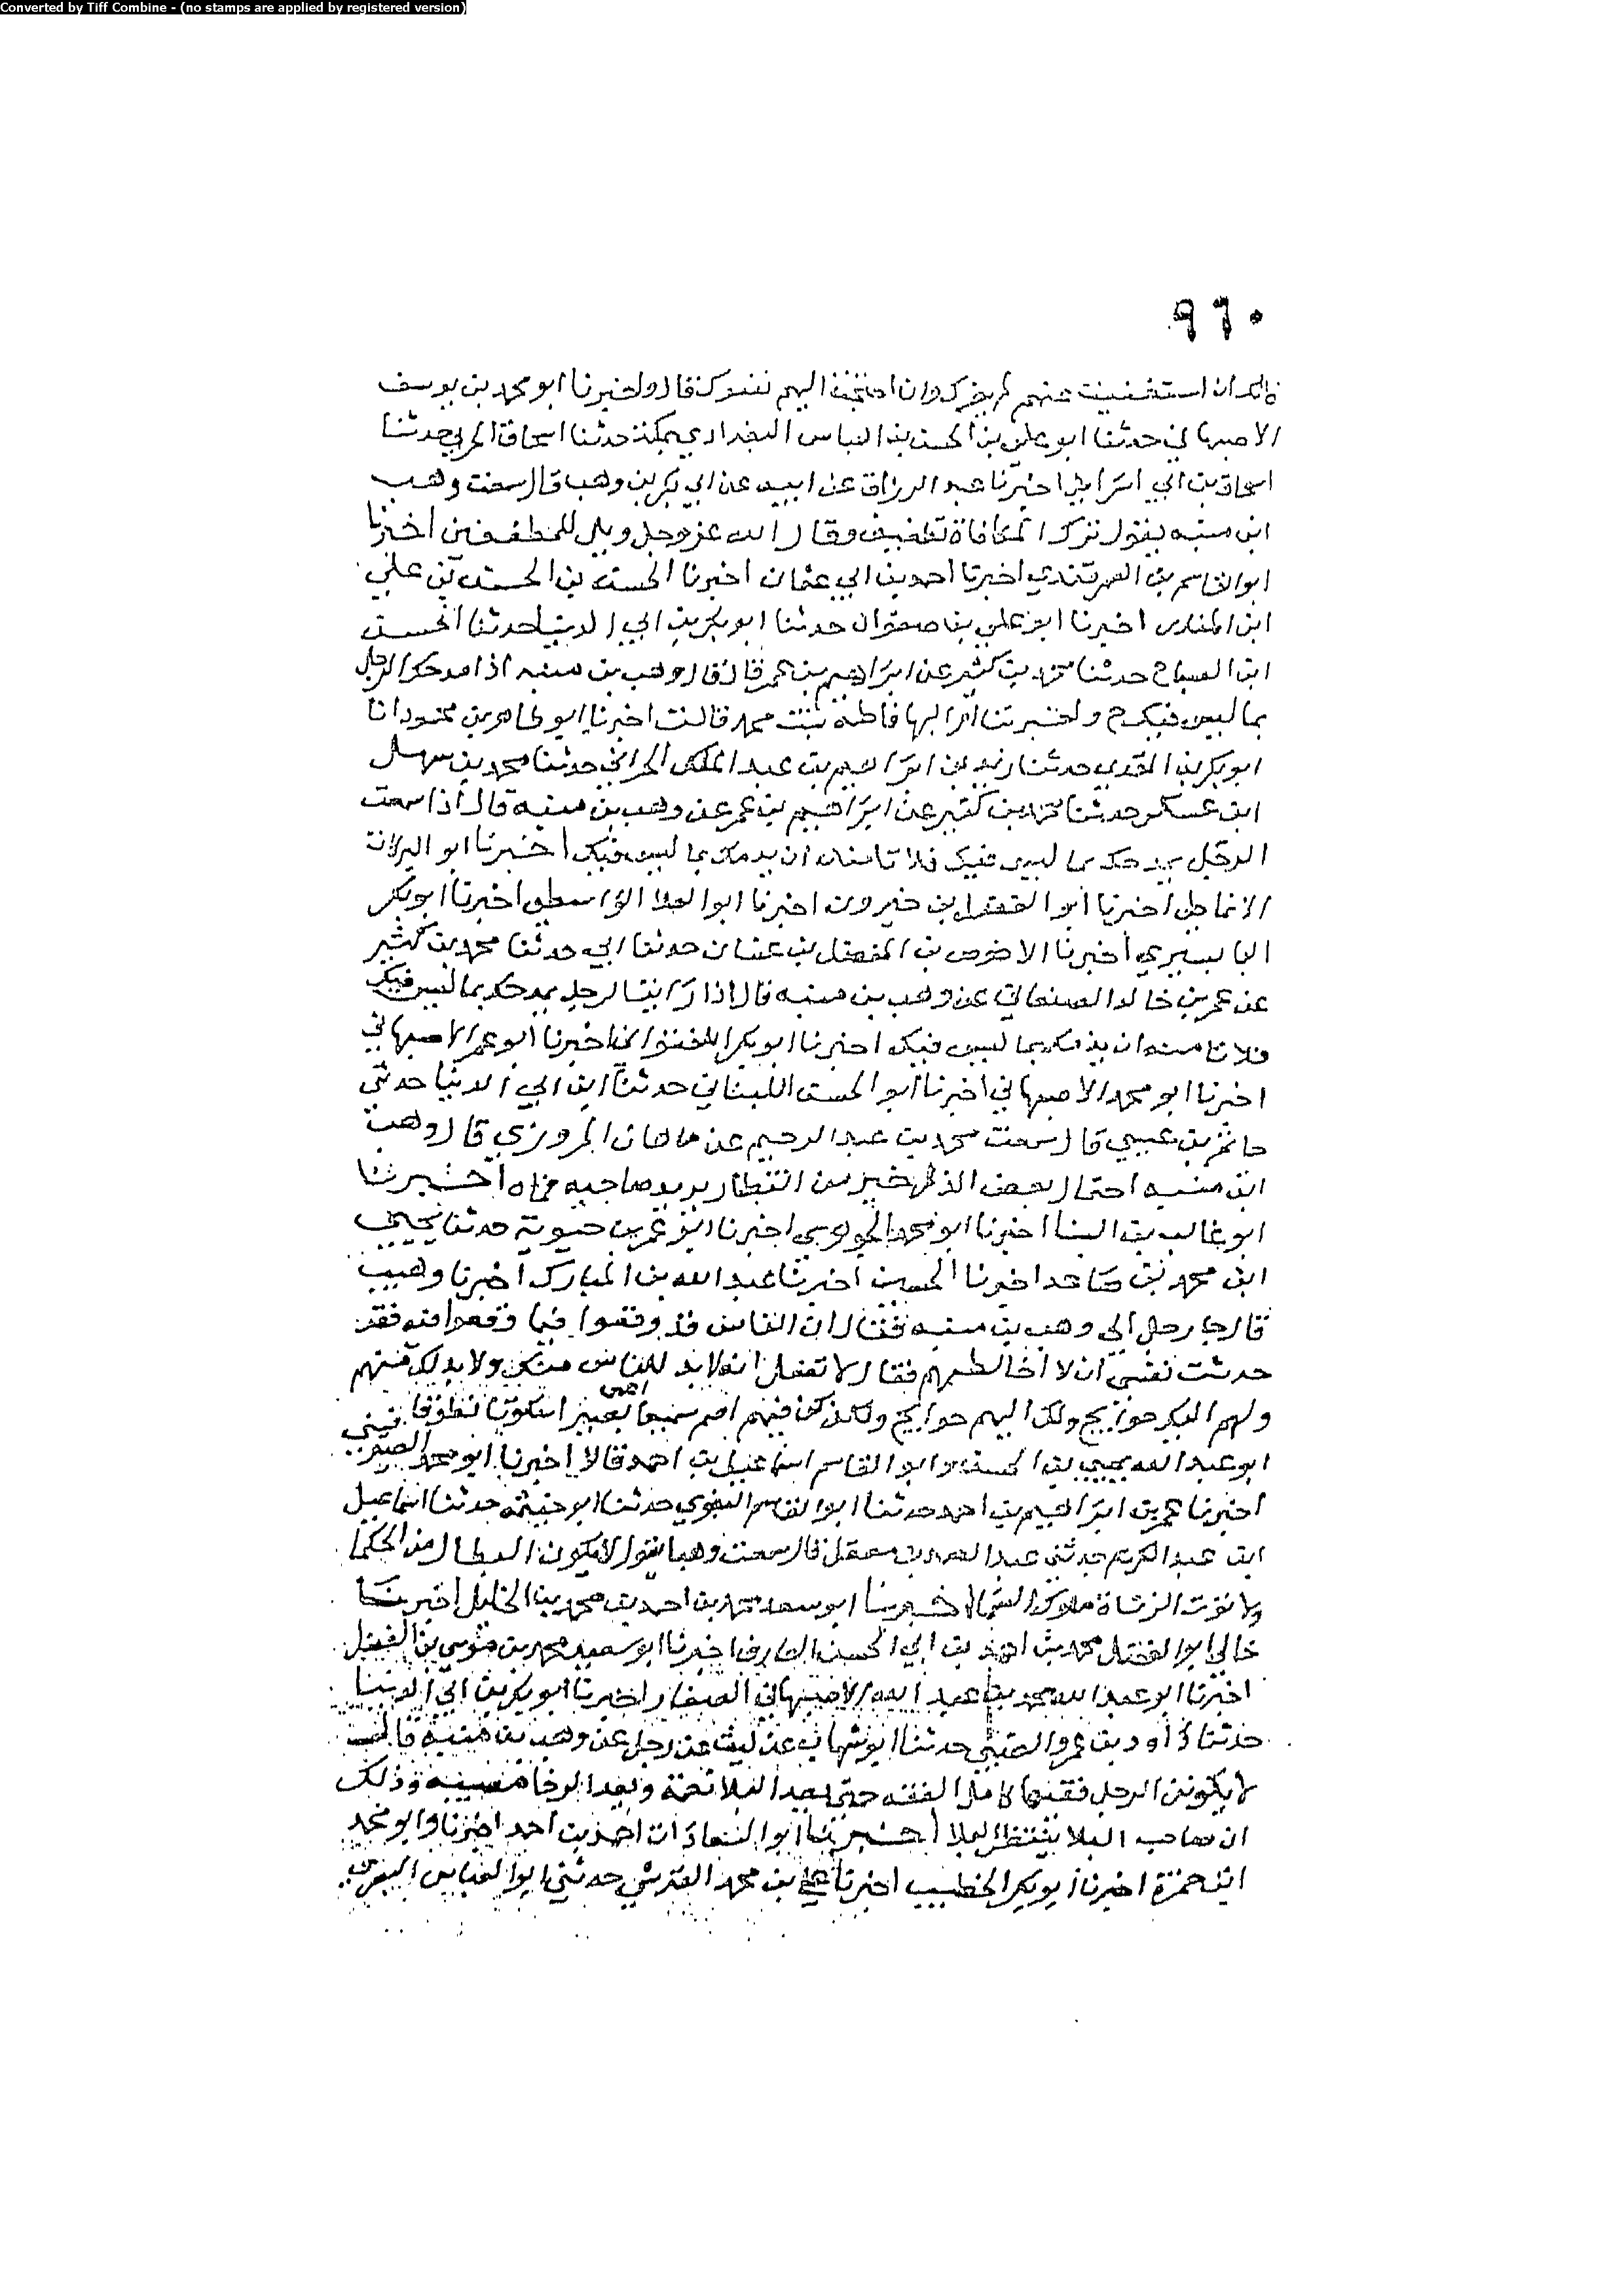 Converted by Tiff Combine - (no stamps are applied by registered version)
٩٦٠
فانك ان استغنيت عنهم لم يضرك وان احتجت اليهم نفعوك قال واخبرنا ابو محمد بن يوسف
الاصبهاني حدثنا ابو علي بن الحسن بن العباس البغدادي بمكة حدثنا اسحاق الحربي حدثنا
اسحاق بن ابي اسرايل اخبرنا عبد الرزاق عن ابيه عن ابي بكر بن وهب قال سمعت وهب
ابن منبه يقول ترك المكافاة تطفيف وقال الله عز وجل ويل للمطففين اخبرنا
ابو القاسم بن السمرقندي اخبرنا احمد بن ابي عثمان اخبرنا الحسن بن الحسن بن علي
ابن المنذر اخبرنا ابو علي بن صفوان حدثنا ابو بكر بن ابي الدنيا حدثنا الحسن
ابن الصباح حدثنا محمد بن كثير عن ابراهيم بن عمر قال قال وهب بن منبه اذا مدحك الرجل
بما ليس فيك ح واخبرتنا ام البها فاطمة بنت محمد قالت اخبرنا ابو طاهر بن محمود انا
ابو بكر بن المقري حدثنا زيد بن ابراهيم بن عبد الملك الحراني حدثنا محمد بن سهل
ابن عسكر حدثنا محمد بن كثير عن ابراهيم بن عمر عن وهب بن منبه قال اذا سمعت
الرجل يمدحك بما ليس فيك فلا تامنه ان يذمك بما ليس فيك اخبرنا ابو البركات
الانماطي اخبرنا ابو الفضل بن خيرون اخبرنا ابو العلا الواسطي اخبرنا ابو بكر
البابسيري اخبرنا الاحوص بن المفضل بن غسان حدثنا ابي حدثنا محمد بن كثير
عن عمر بن خالد الصنعاني عن وهب بن منبه قال اذا رايت الرجل يمدحك بما ليس فيك
فلا تامنه ان يذمك بما ليس فيك اخبرنا ابو بكر اللفتواني اخبرنا ابو عمر الاصبهاني
اخبرنا ابو محمد الاصبهاني اخبرنا ابو الحسن اللبناني حدثنا ابن ابي الدنيا حدثني
حاتم بن عيسى قال سمعت محمد بن عبد الرحيم عن ماهان المروزي قال وهب
ابن منبه احتمال بعض الذل خير من انتظار يزيد صاحبه اخبرنا
ابو غالب بن البنا اخبرنا ابو محمد الجوهري اخبرنا ابو عمر بن حيوية حدثنا يحيى
ابن محمد بن صاعد اخبرنا الحسين اخبرنا عبد الله بن المبارك اخبرنا وهيب
قال جا رجل الى وهب بن منبه فقال ان الناس قد وقعوا فيما وقعوا فيه فقد
حدثت نفسي ان لا اخالطهم فقال لا تفعل انه لا بد للناس منك ولا بد لك منهم
ولهم اليك حوايج ولك اليهم حوايج ولكن كن فيهم اصم سميعا اعمى بصيرا سكوتا نطوقا
ابو عبد الله يحيى بن الحسن وابو القاسم اسماعيل بن احمد قالا اخبرنا ابو محمد الصيرفيني
اخبرنا عمر بن ابراهيم بن احمد حدثنا ابو القاسم البغوي حدثنا ابو خيثمة حدثنا اسماعيل
ابن عبد الكريم حدثني عبد الصمد بن معقل قال سمعت وهبا يقول لا يكون البطال من الحكما
ولا يرث الزناة ملكوت السما اخبرنا ابو سعد محمد بن احمد بن محمد بن الخليل اخبرنا
خالي ابو الفضل محمد بن احمد بن ابي الحسن العارف اخبرنا ابو سعيد محمد بن موسى بن الفضل
اخبرنا ابو عبد الله محمد بن عبد الله الاصبهاني الصفار اخبرنا ابو بكر بن ابي الدنيا
حدثنا داود بن عمرو الضبي حدثنا ابو شهاب عن ليث عن رجل عن وهب بن منبه قال
لا يكون الرجل فقيها كامل الفقه حتى يعد البلا نعمة ويعد الرخا مصيبة وذلك
ان صاحب البلا ينتظر البلا اخبرنا ابو السعادات احمد بن احمد اخبرنا وابو محمد
ابن حمزة اخبرنا ابو بكر الخطيب اخبرنا علي بن محمد القرشي حدثني ابو العباس